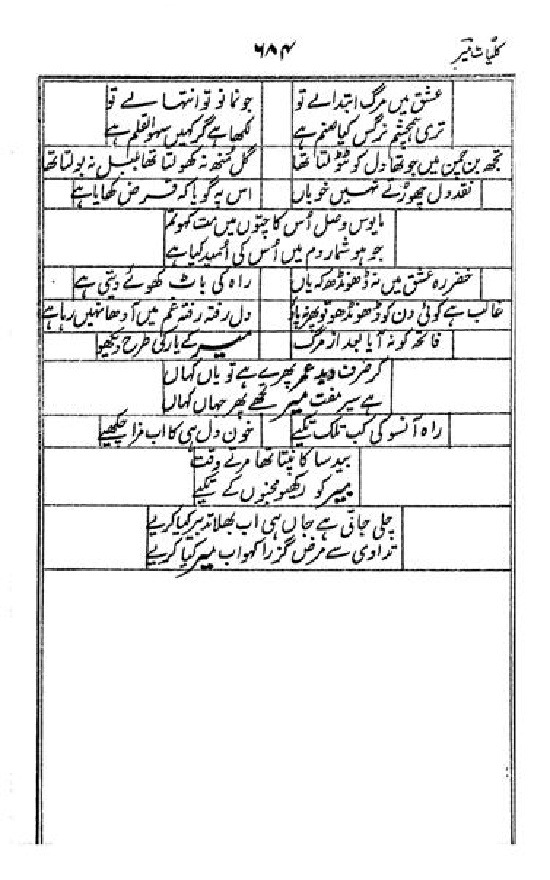 کلیات میر
۶۸۴
عشق میں مرگ ابتدا ہے تو جو نما ہو تو انتہا ہے تو
تری ہمچشم نرگس کیا صنم ہے لکھا ہے گر کہیں سہو القلم ہے
تجھ بن چمن میں جو تھا دل کو ٹٹولتا تھا گل منھ نہ کھولتا تھا بلبل نہ بولتا تھا
نقد دل چھوڑتے نہیں خوباں اس پہ گویا کہ قرض کھایا ہے
مایوس وصل اس کا جتوں میں مت کہو تم
جو ہو شمار دم میں اس کی امید کیا ہے
خضر رہ عشق میں نہ ڈھونڈھ کہ یاں راہ کی باٹ کھوئے دیتی ہے
غالب ہے کوئی دن کو ڈھونڈھو تو پھر نہ پاؤ دل رفتہ رفتہ غم میں آدھا نہیں رہا ہے
فاتحہ کو نہ آیا بعد از مرگ میر کے یار کی طرح دیکھو
گر صرف دید عمر پھرے ہے تو یاں کہاں
ہے سیر مفت میر تجھے پھر جہاں کہاں
راہ آنسو کی کب تلک تکیے خون دل ہی کا اب مزا چکھیے
بید سا کانپتا تھا مرتے وقت
میر کو رکھو مجنوں کے تکیے
چلی جاتی ہے جاں ہی اب بھلا تدبیر کیا کریے
تداوی سے مرض گزرا کہو اب میر کیا کریے